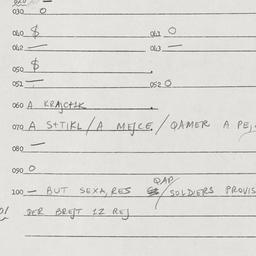 030 O
040 $ 041 O
042 — 043 —
050 $
051 — 052 O
060 A KRAJCTIK
070 A STTIKL / A MEJCE / QAMER A PE
080 —
090 O
QAP
100 — BUT SEXA, RES / SOLDIERS PROVIS
DER BREJT IZ REJ